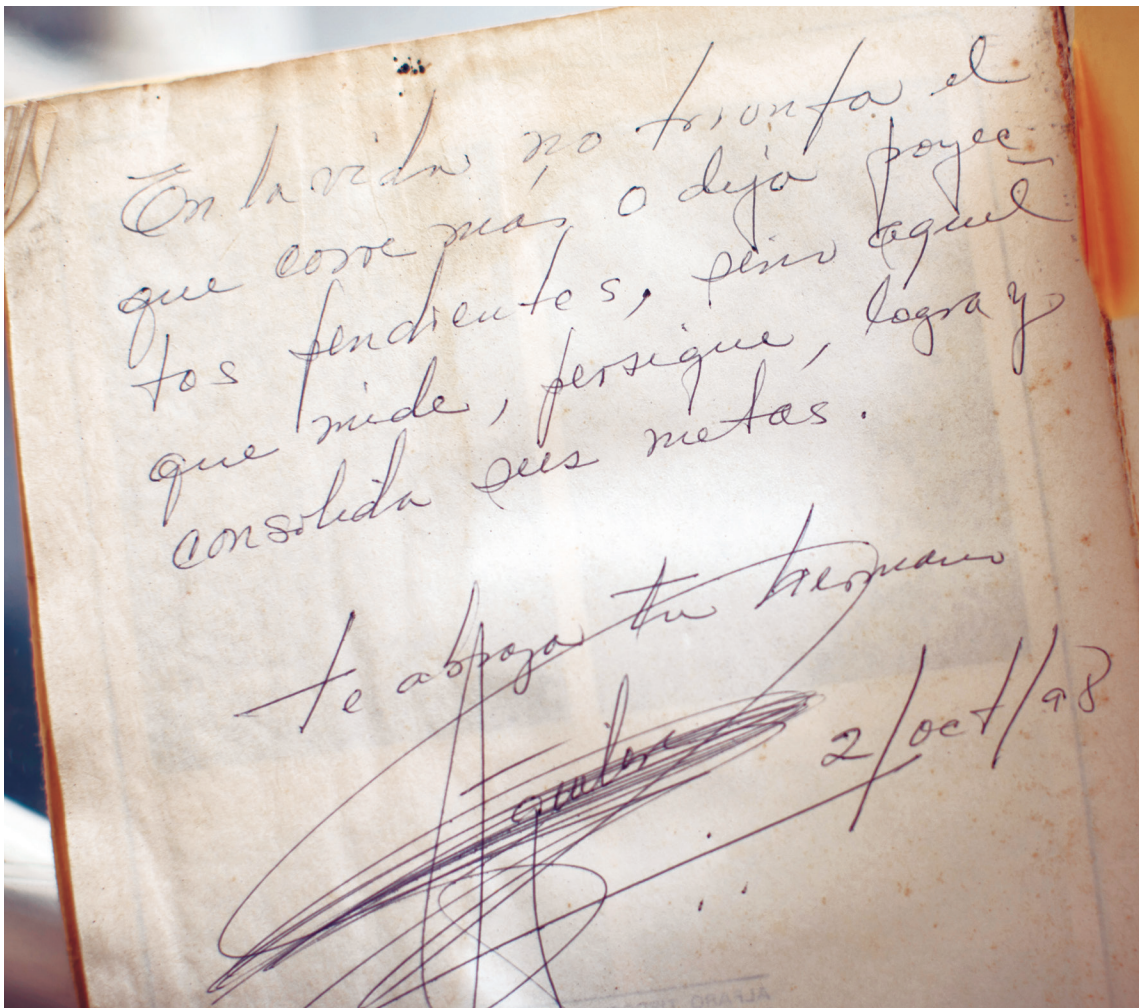 En la vida, no triunfa el
que corre más o deja poyec-
tos pendientes, sino aquel
que mide, persigue, logra y
consolida sus metas.
te abraza tu hermano
2/oct/98